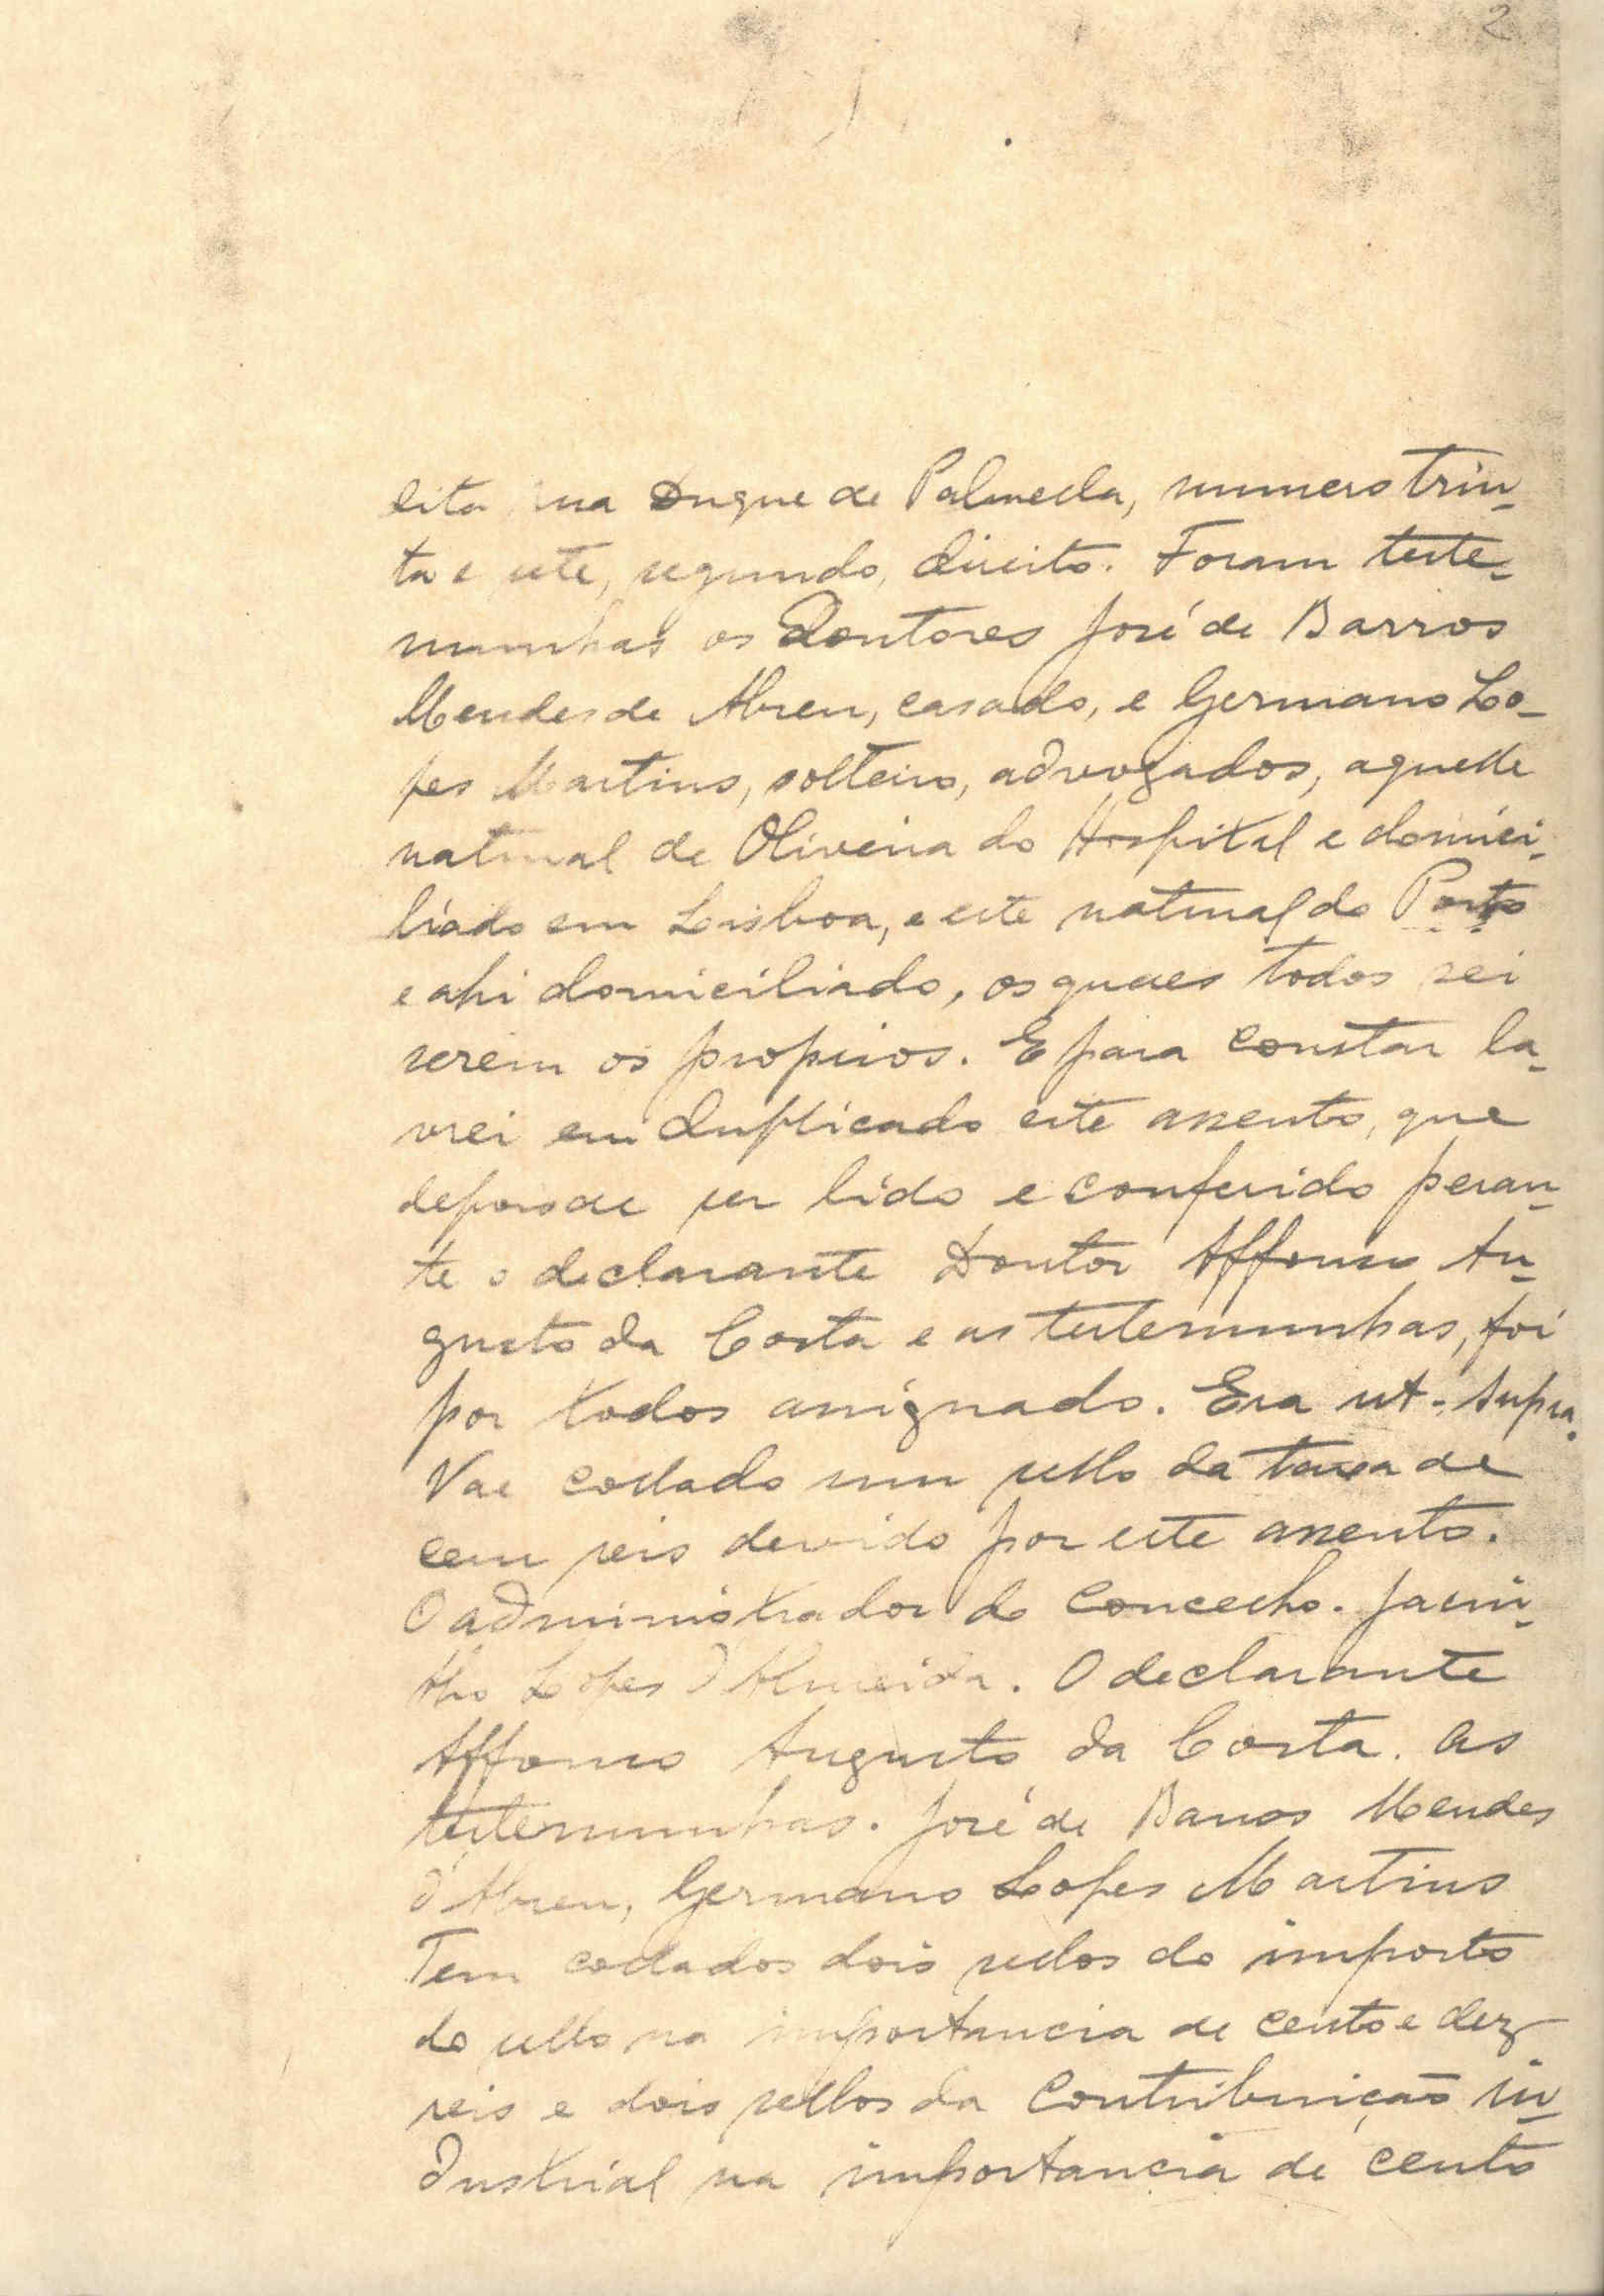 2
lita rua Duque de Palmella, numero trin-
ta e sete, segundo, direito. Foram teste-
munhas os Doutores José de Barros
Mendes de Abreu, casado, e Germano Lo-
pes Martins, solteiro, advogados, aquelle
natural de Oliveira do Hospital e domici-
liado em Lisboa, e este natural do Porto
e ahi domiciliado, os quaes todos sei
serem os proprios. E para constar la-
vrei em duplicado este assento, que
depois de ser lido e conferido peran-
te o declarante Doutor Affonso Au-
gusto da Costa e as testemunhas, foi
por todos assignado. Era ut-supra.
Vae collado um sello da taxa de
cem reis devido por este assento.
O administrador do concelho. Jacin-
tho Lopes d'Almeida. O declarante
Affonso Augusto da Costa. As
testemunhas. José de Barros Mendes
d'Abreu, Germano Lopes Martins
Tem collados dois sellos do imposto
do sello na importancia de cento e dez
reis e dois sellos da Contribuição in-
dustrial na importancia de cento